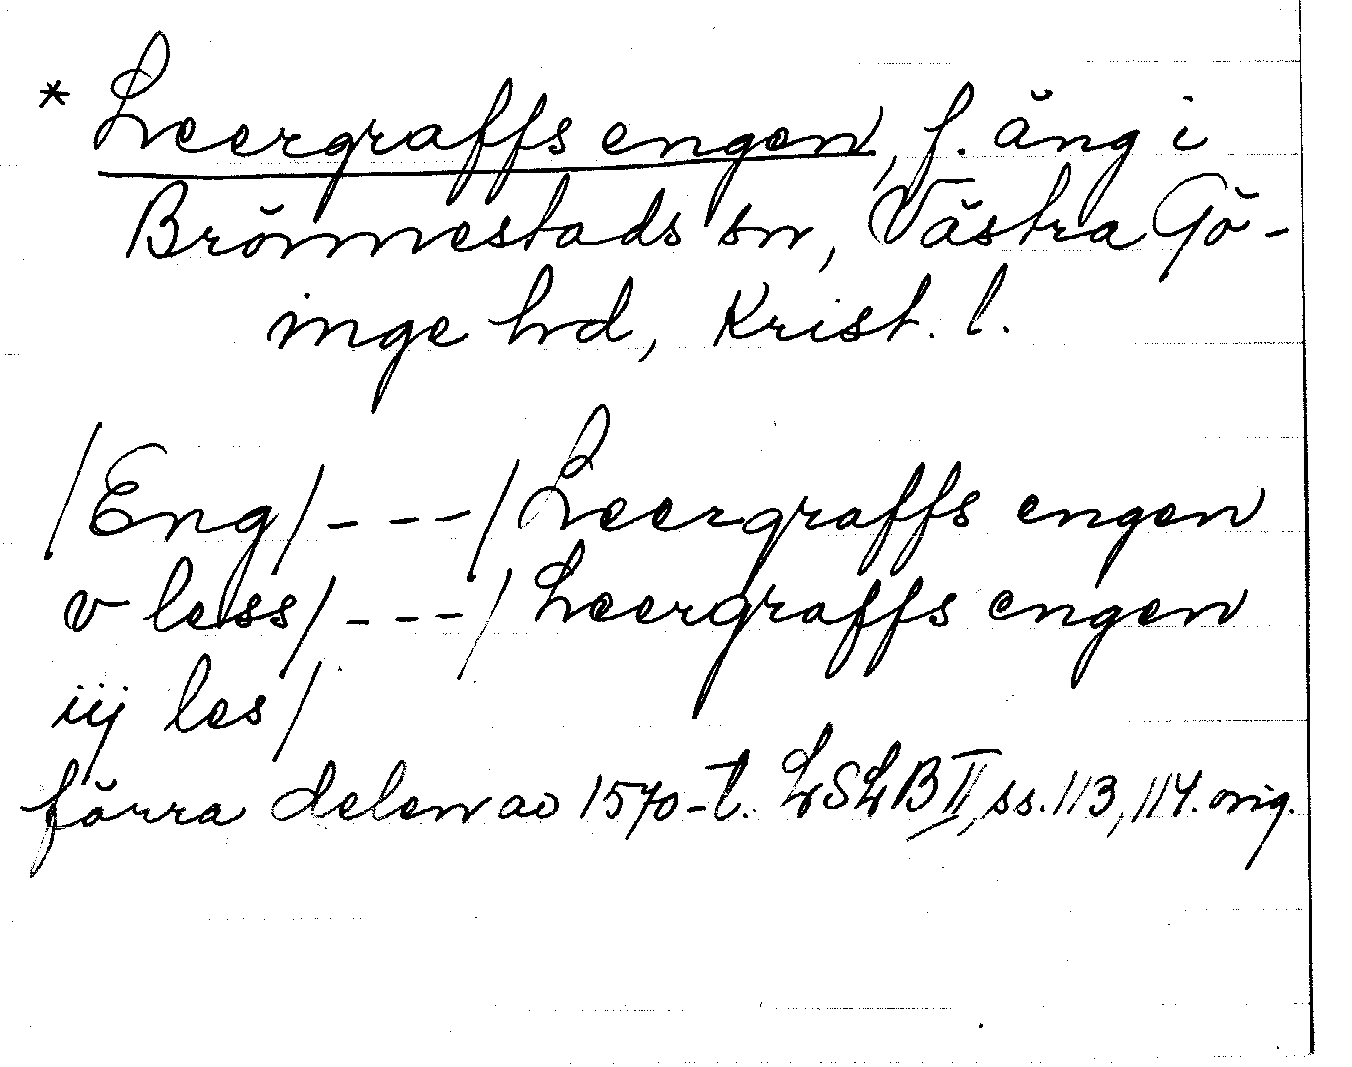 * Leergraffs engen, f. äng i
Brönnestads sn, Västra Gö-
inge hd, Krist. l.
/Eng/ - - - / Leergraffs engen
v less/ - - - / Leergraffs engen
iij les/
förra delen av 1570-t. LSLB II, ss. 113, 114. orig.